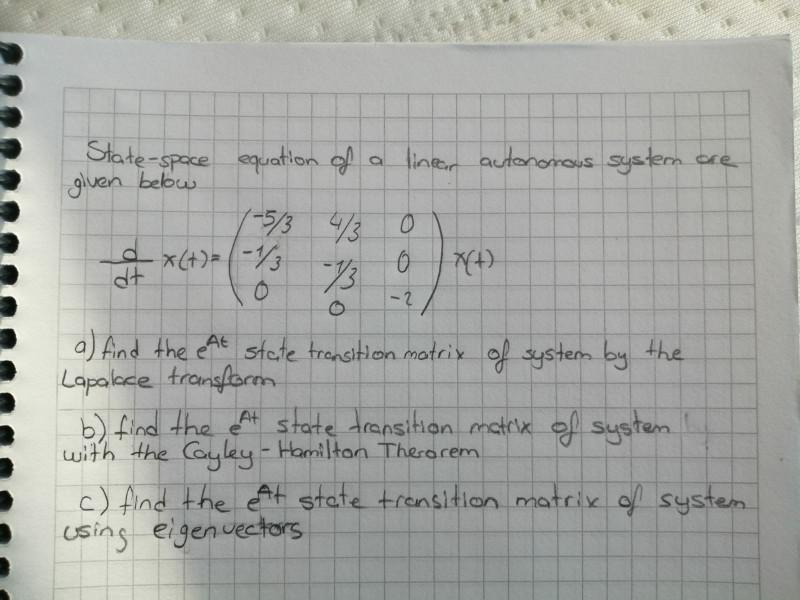 State-space equation of a linear autonomous system are
given below
d/dt x(t) = ( -5/3 4/3 0
-1/3 -1/3 0
0 0 -2 ) x(t)
a) find the e^At state transition matrix of system by the
Lapalace transform
b) find the e^At state transition matrix of system
with the Cayley-Hamilton Therorem
c) find the e^At state transition matrix of system
using eigenvectors